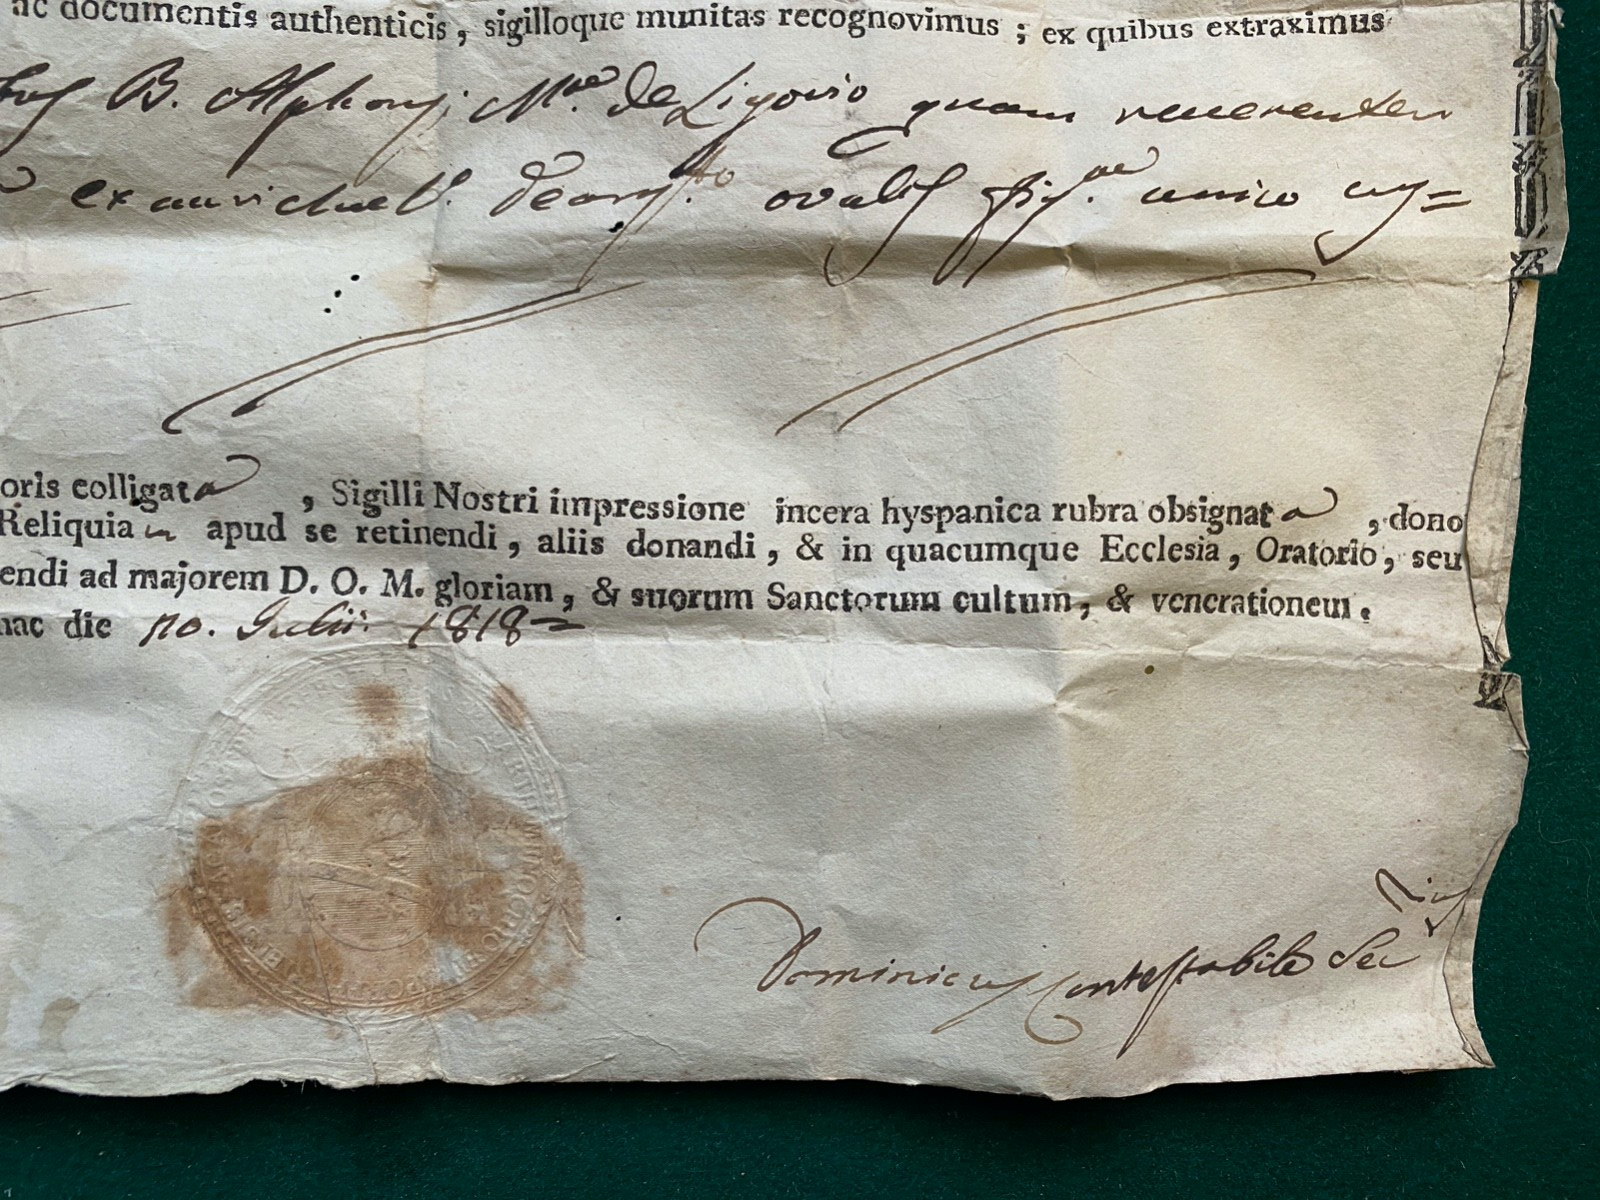 ac documentis authenticis, sigilloque munitas recognovimus; ex quibus extraximus
B. Alphonsi Mae de Ligorio quam reverenter
ex auricha l. ovalis figae unico
oris colligata, Sigilli Nostri impressione in cera hyspanica rubra obsignata, dono
Reliquiam apud se retinendi, aliis donandi, & in quacumque Ecclesia, Oratorio, seu
endi ad majorem D. O. M. gloriam, & suorum Sanctorum cultum, & venerationem.
hac die 10. Julii 1818
Dominicus Contestabile Sec